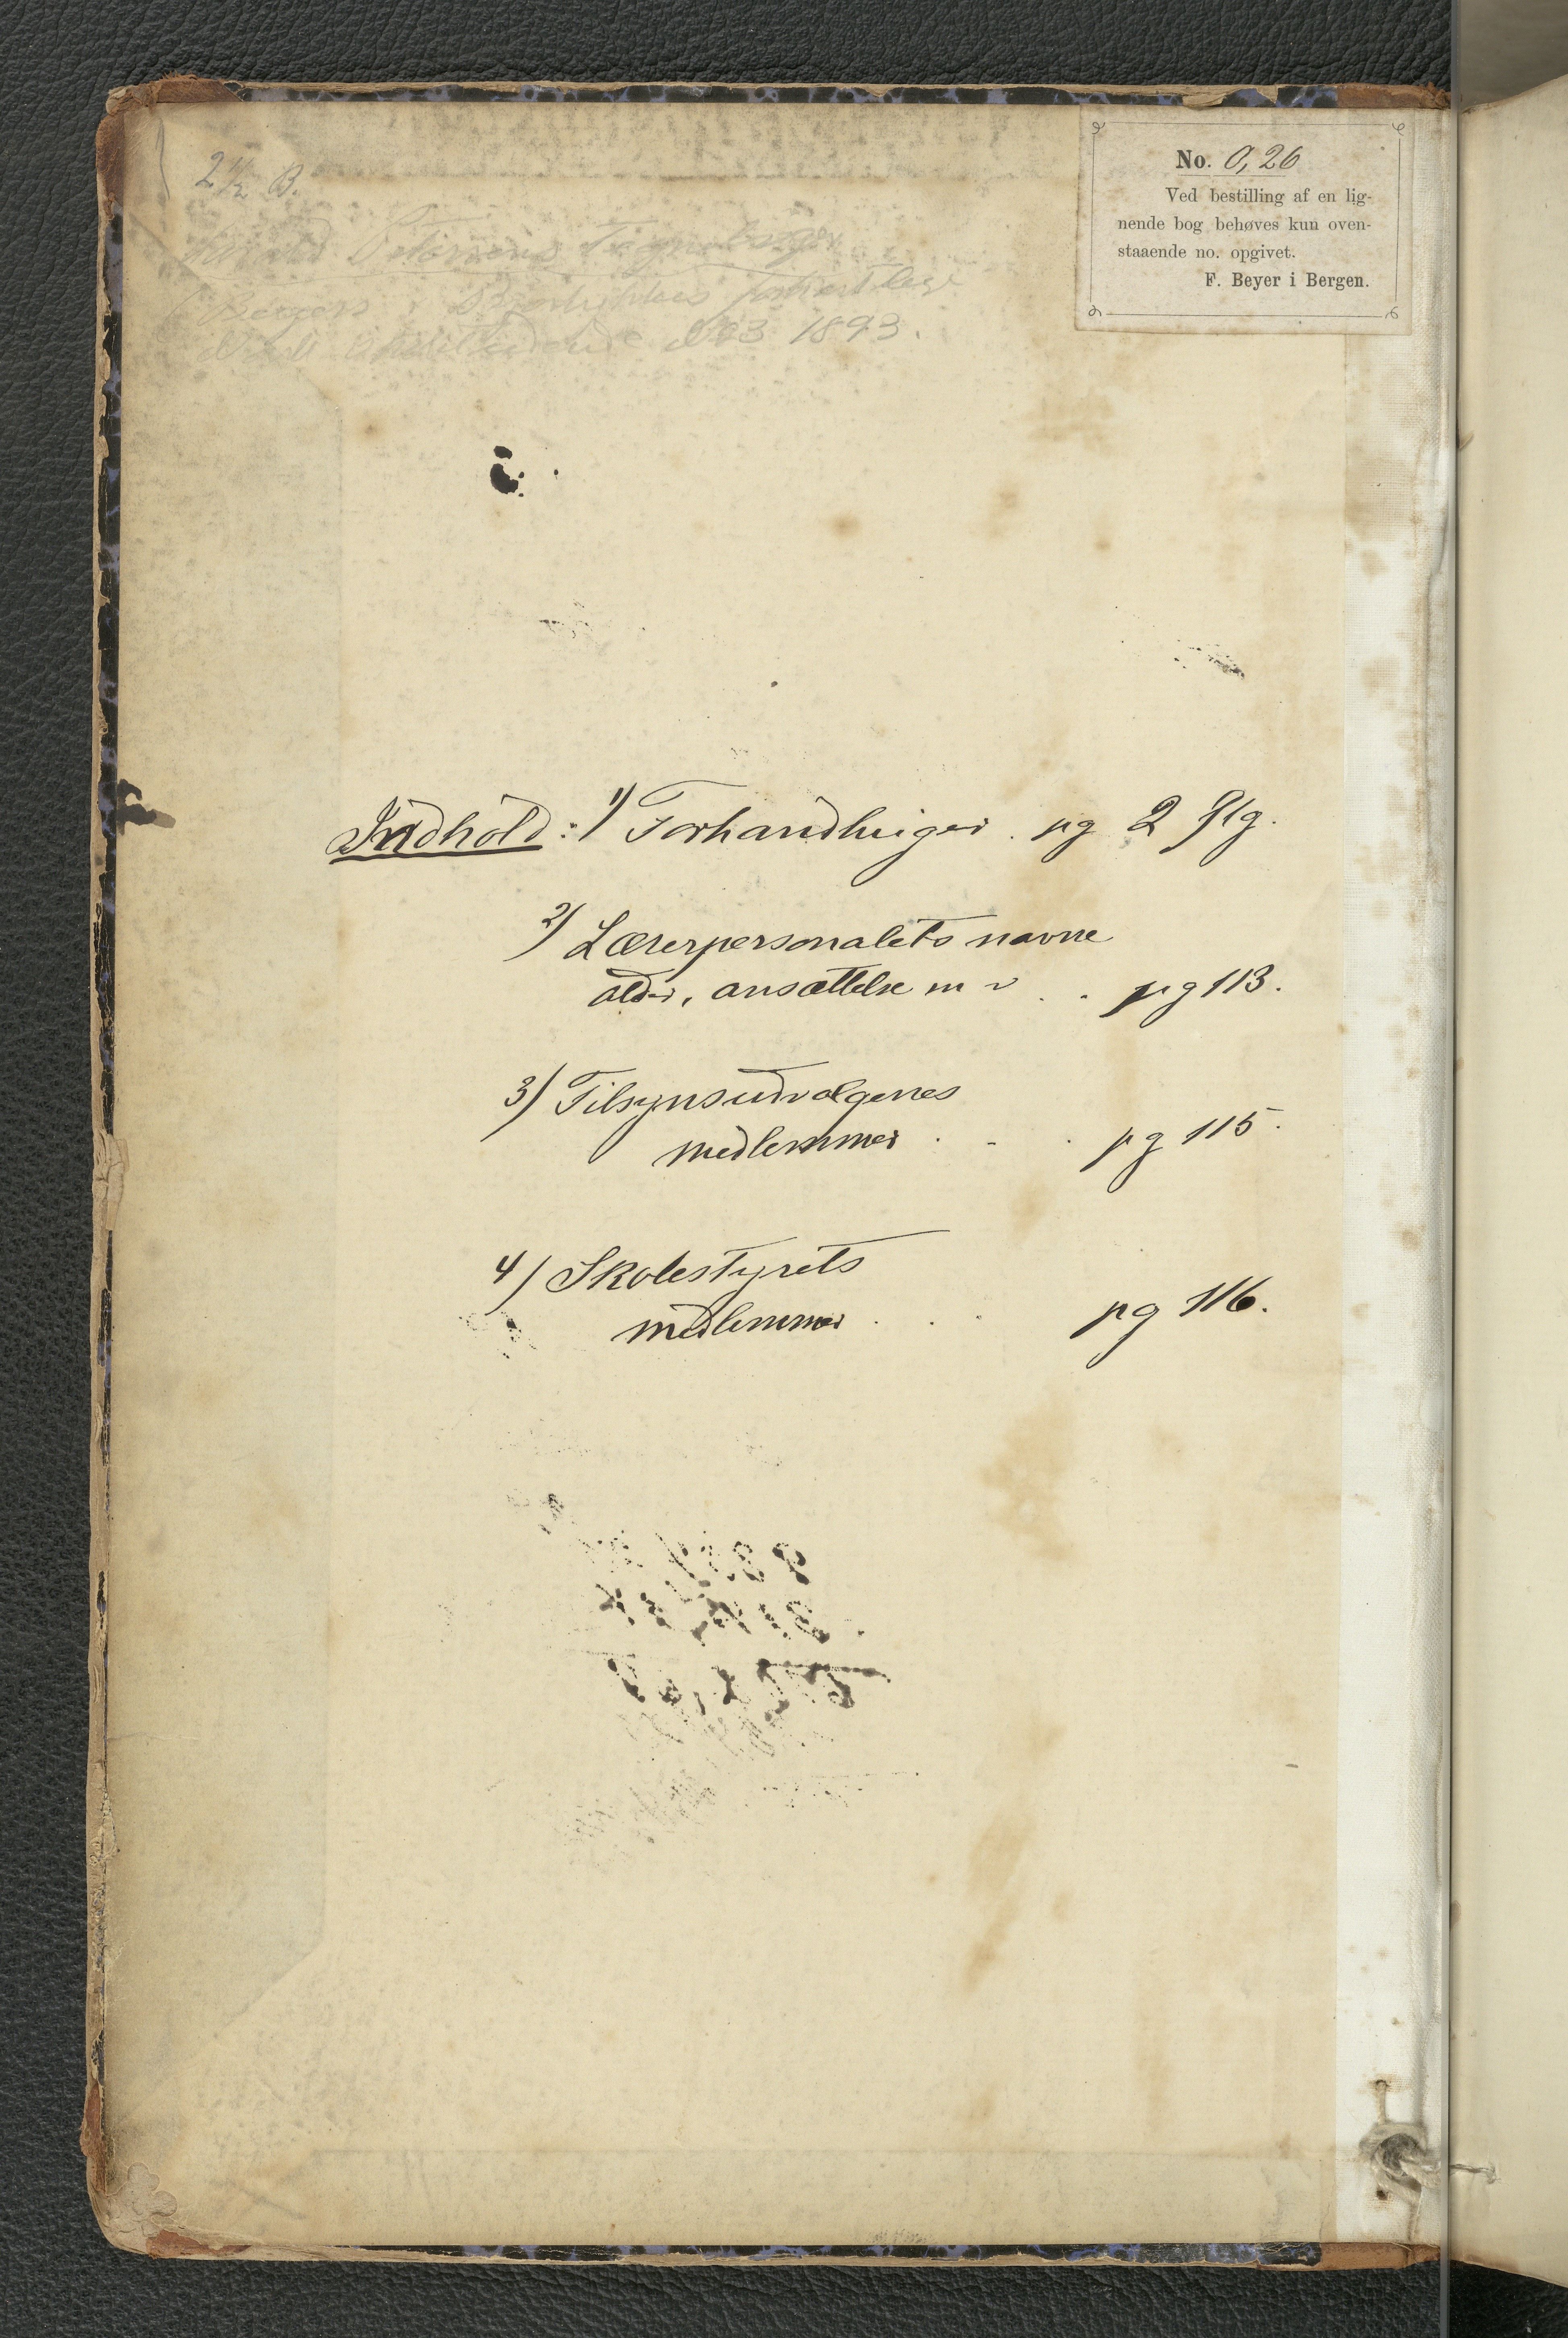 2 1/2 B.
No. 0,26
Ved bestilling af en lig-
nende bog behøves kun oven-
staaende no. opgivet.
F. Beyer i Bergen.
Tegnebøger
Bergen
No 3 1893.
Indhold: 1) Forhandlinger . pg 2 flg.
2) Lærerpersonalets navne
alder, ansættelse m v . . pg 113.
3) Tilsynsudvalgenes
medlemmer . . . pg 115.
4) Skolestyrets
medlemmer . . . pg 116.